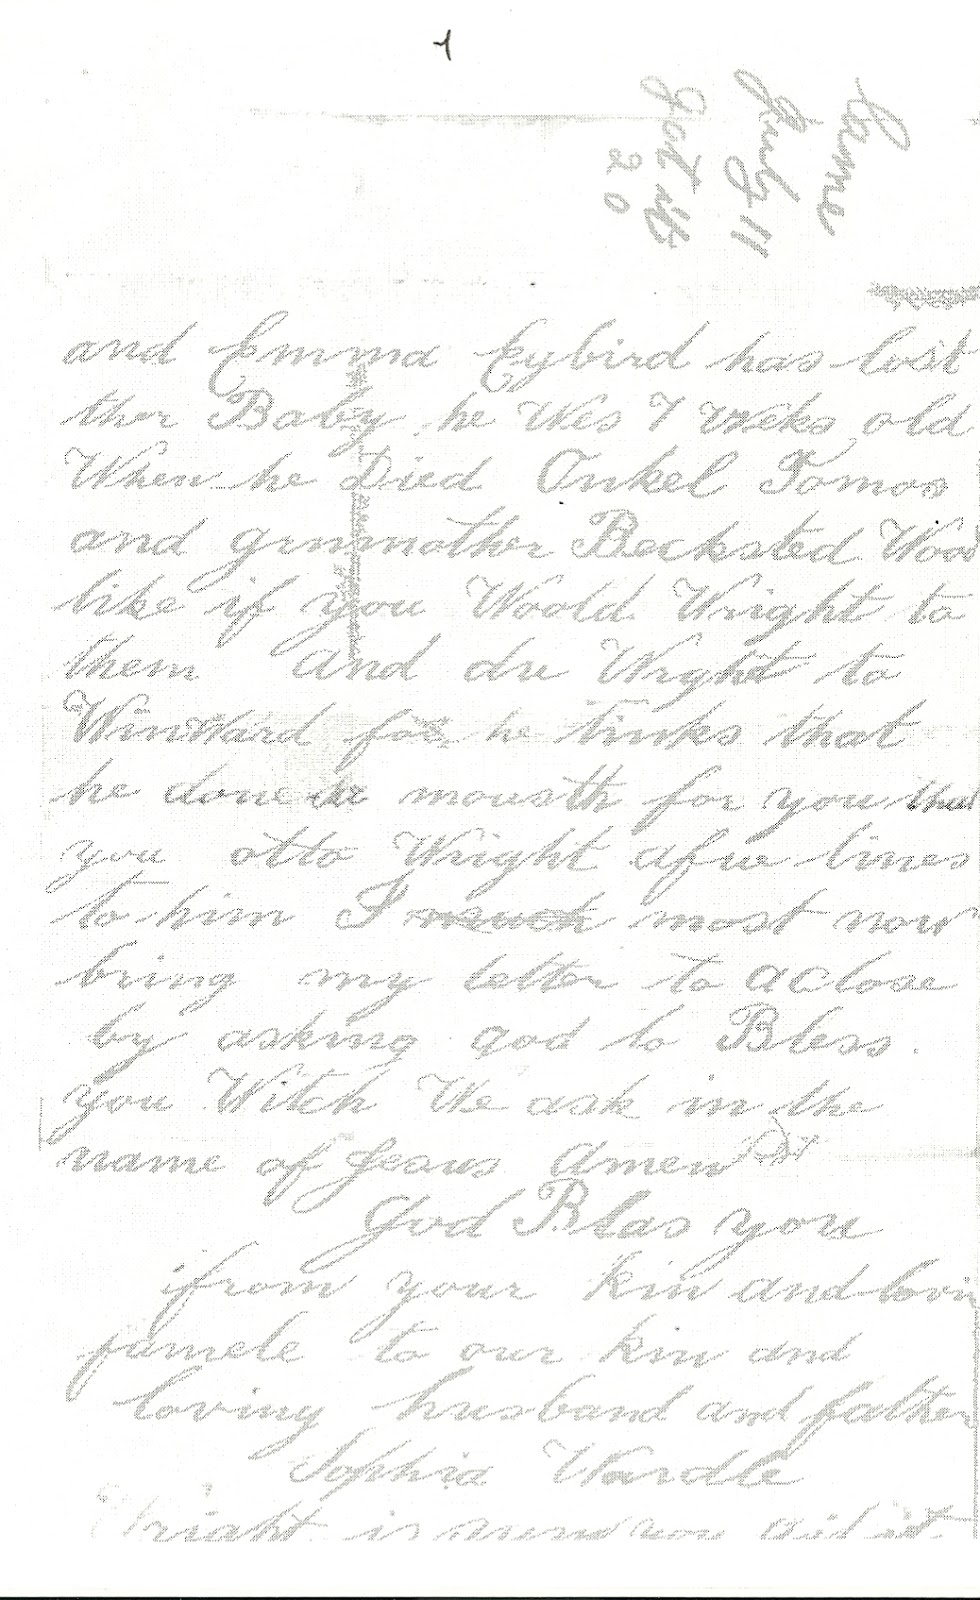 1
came
July 11
Got it
20
and Emma Eybird has lost
ther Baby he Wes 7 weeks old
When he Died Onkel Tomos
and grnmother Becksted Wood
like if you Woold Wright to
them and du Wright to
WinWard for he tinks that
he done so mousth for you that
you otto Wright afue lines
to him I most now
bring my letter to aclose
by asking god to Bless
you Witch We ask in the
name of Jesus Amen
God Blas you
from your kin and lovin
famele to our kin and
loving husband and father
Sophia Wardle